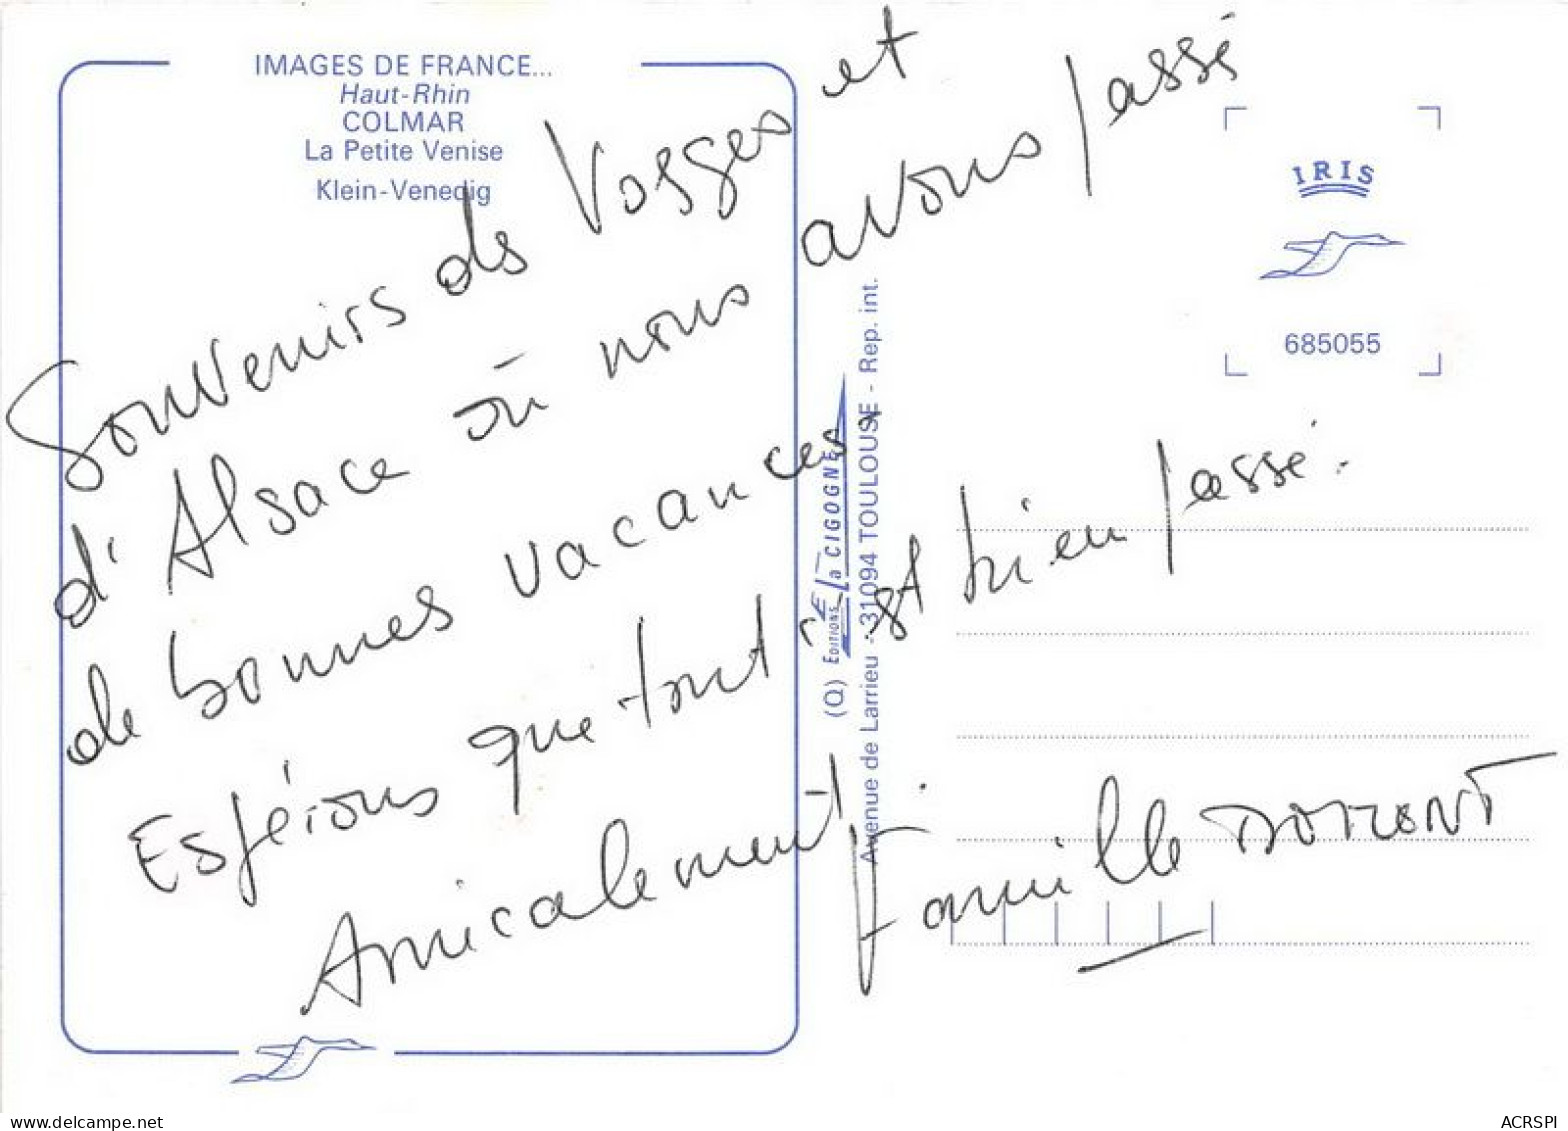 IMAGES DE FRANCE...
Haut-Rhin
COLMAR
La Petite Venise
Klein-Venedig
Souvenirs de Vosges et
d'Alsace où nous avons passé
de bonnes vacances.
Espérons que tout s'est bien passé.
Amicalement.
Famille
IRIS
685055
(Q) EDITIONS La CIGOGNE
Avenue de Larrieu - 31094 TOULOUSE - Rep. int.
delcampe.net
ACRSPI